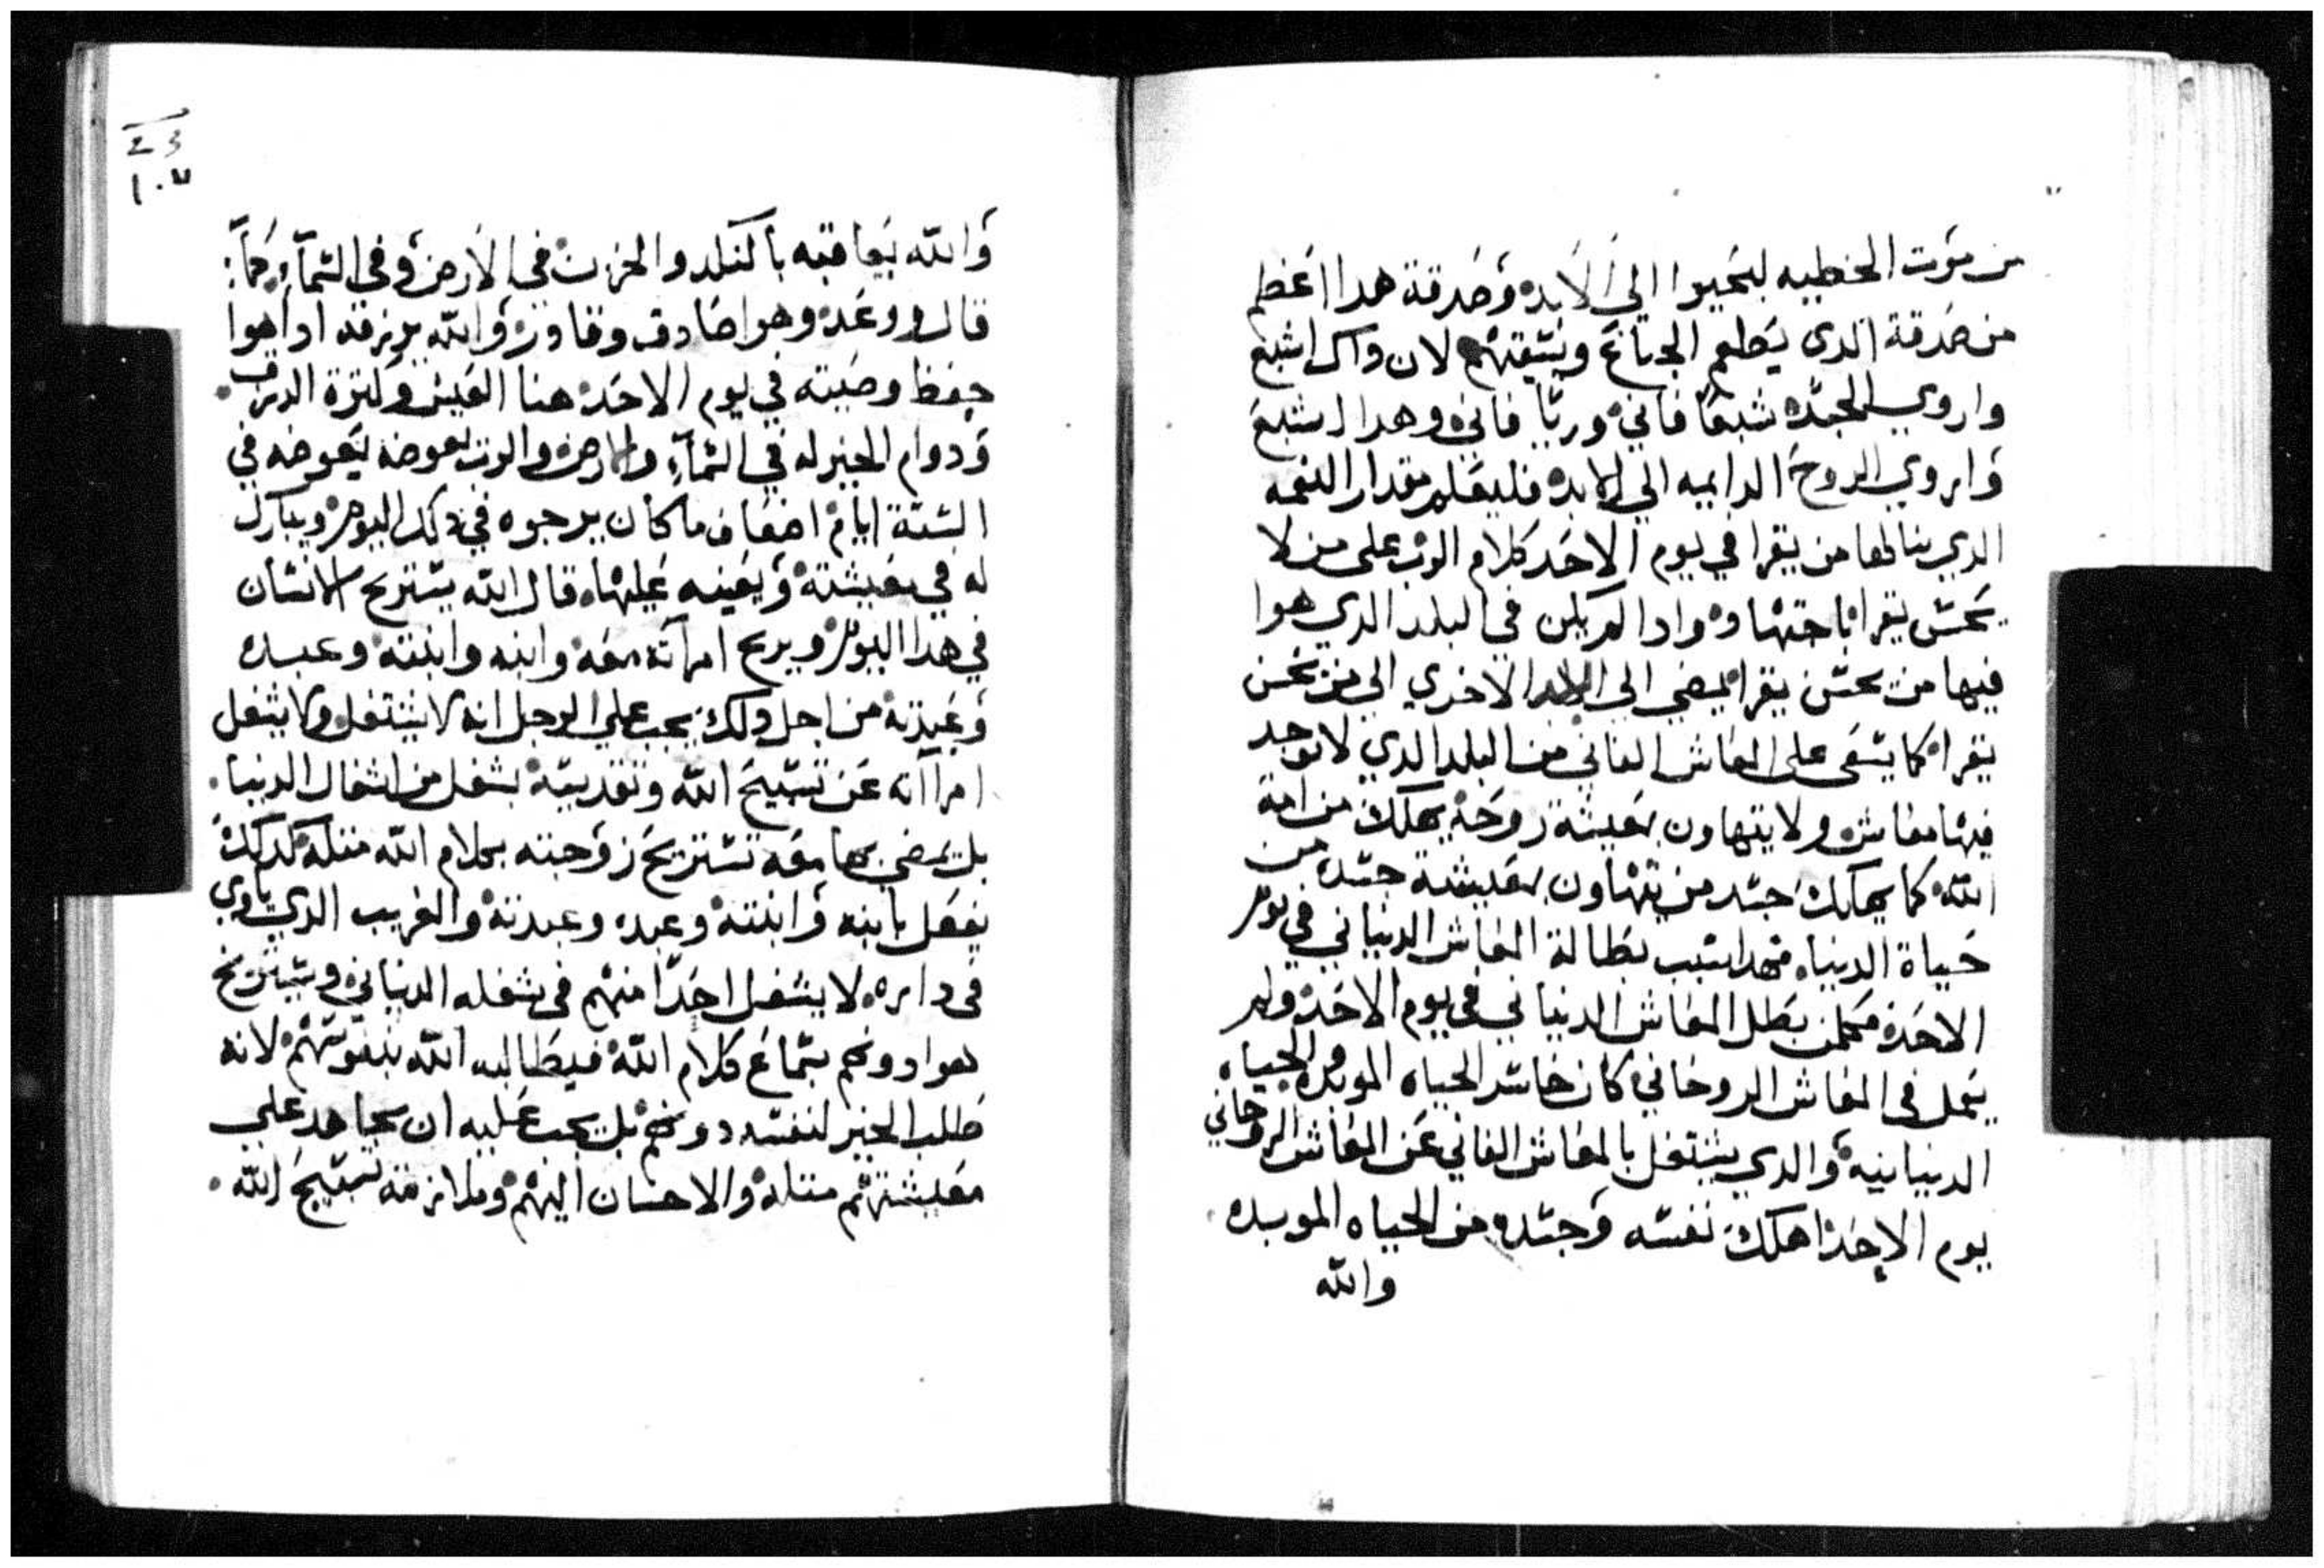 من موت الخطيه ليحيوا الي الابد وصدقة هدا اعظم
من صدقة الدى يطعم الجياع ويسقيهم لان داك اشبع
واروي الجسد شبعا فاني وريا فاني وهدا اشبع
واروي الروح الدايمه الي الابد فليعلم مقدار النعمه
الدي ينالها من يقرا في يوم الاحد كلام الرب على من لا
يحسن يقرا باجتهاد وادا لم يكن في البلد الدي هوا
فيها من يحسن يقرا يمضي الى البلد الاخري الى من يحسن
يقرا كما يسعى على المعاش الفاني من البلد الدي لا يوجد
فيها معاش ولا يتهاون بمعيشة روحه يهلك من امة
الله كما يهلك جسد من يتهاون بمعيشة جسده من
حياة الدنيا فهدا سبب بطالة المعاش الدنياني في يوم
الاحد فمن بطل المعاش الدنياني في يوم الاحد ولم
يعمل في المعاش الروحاني كان خاسر الحياه الموبده والحياه
الدنيانيه والدي يشتغل بالمعاش الفاني عن المعاش الروحاني
يوم الاحد اهلك نفسه وجسده من الحياه الموبده
والله
23
١٠٧
والله يعاقبه بالنكد والحزن في الارض وفي السمآء كمآ
قال ووعد وهوا صادق وقادر والله يرزقه ادا هوا
حفظ وصيته في يوم الاحد هنا العيش وكترة الرزق
ودوام الخير له في السمآء والارض والرب يعوضه في
الستة ايام اضعاف ما كان يرجوه في دلك اليوم ويبارك
له في معيشته ويعينه عليها قال الله يستريح الانسان
في هدا اليوم ويريح امراته معه وابنه وابنته وعبده
وعبدته من اجل دلك يجب على الرجل انه لا يشتغل ولا يشغل
امرآته عن تسبيح الله وتقديسه بشغل من اشغال الدنيا
بل يمضي بها معه تستريح زوجته بكلام الله متله كدلك
يفعل بابنه وابنته وعبده وعبدته والغريب الدي ياوي
في داره لا يشغل احدا منهم في شغله الدنياني ويستريح
هوا دونهم بسماع كلام الله فيطالبه الله بنفوسهم لانه
طلب الخير لنفسه دونهم بل يجب عليه ان يجاهد على
معيشتهم متله والاحسان اليهم وملازمة تسبيح الله